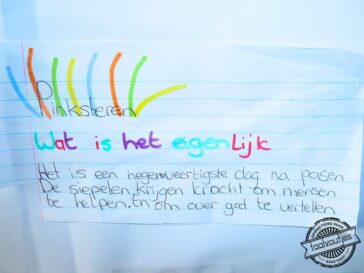 Pinksteren
Wat is het eigenlijk
Het is een hegenveertigste dag na pasen
De siepelen krijgen kracht om mensen
te helpen. En om over god te vertellen
taalvoutjes